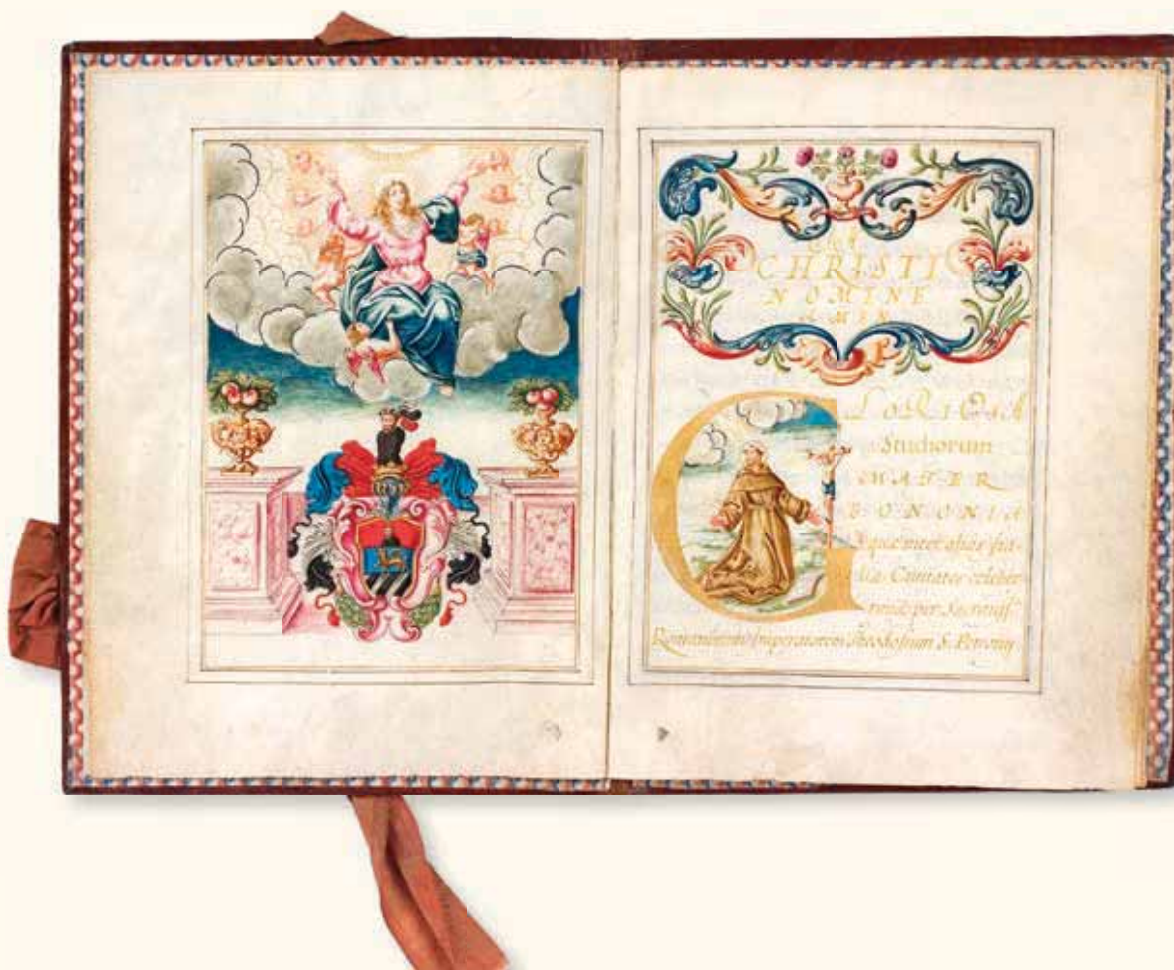 IN
CHRISTI
NOMINE
AMEN
GLORIOSA
Studiorum
MATER
BONONIA
quae inter alias
Civitates celeber
per
Romanorum Imperatorem Theodosium S. Petronij